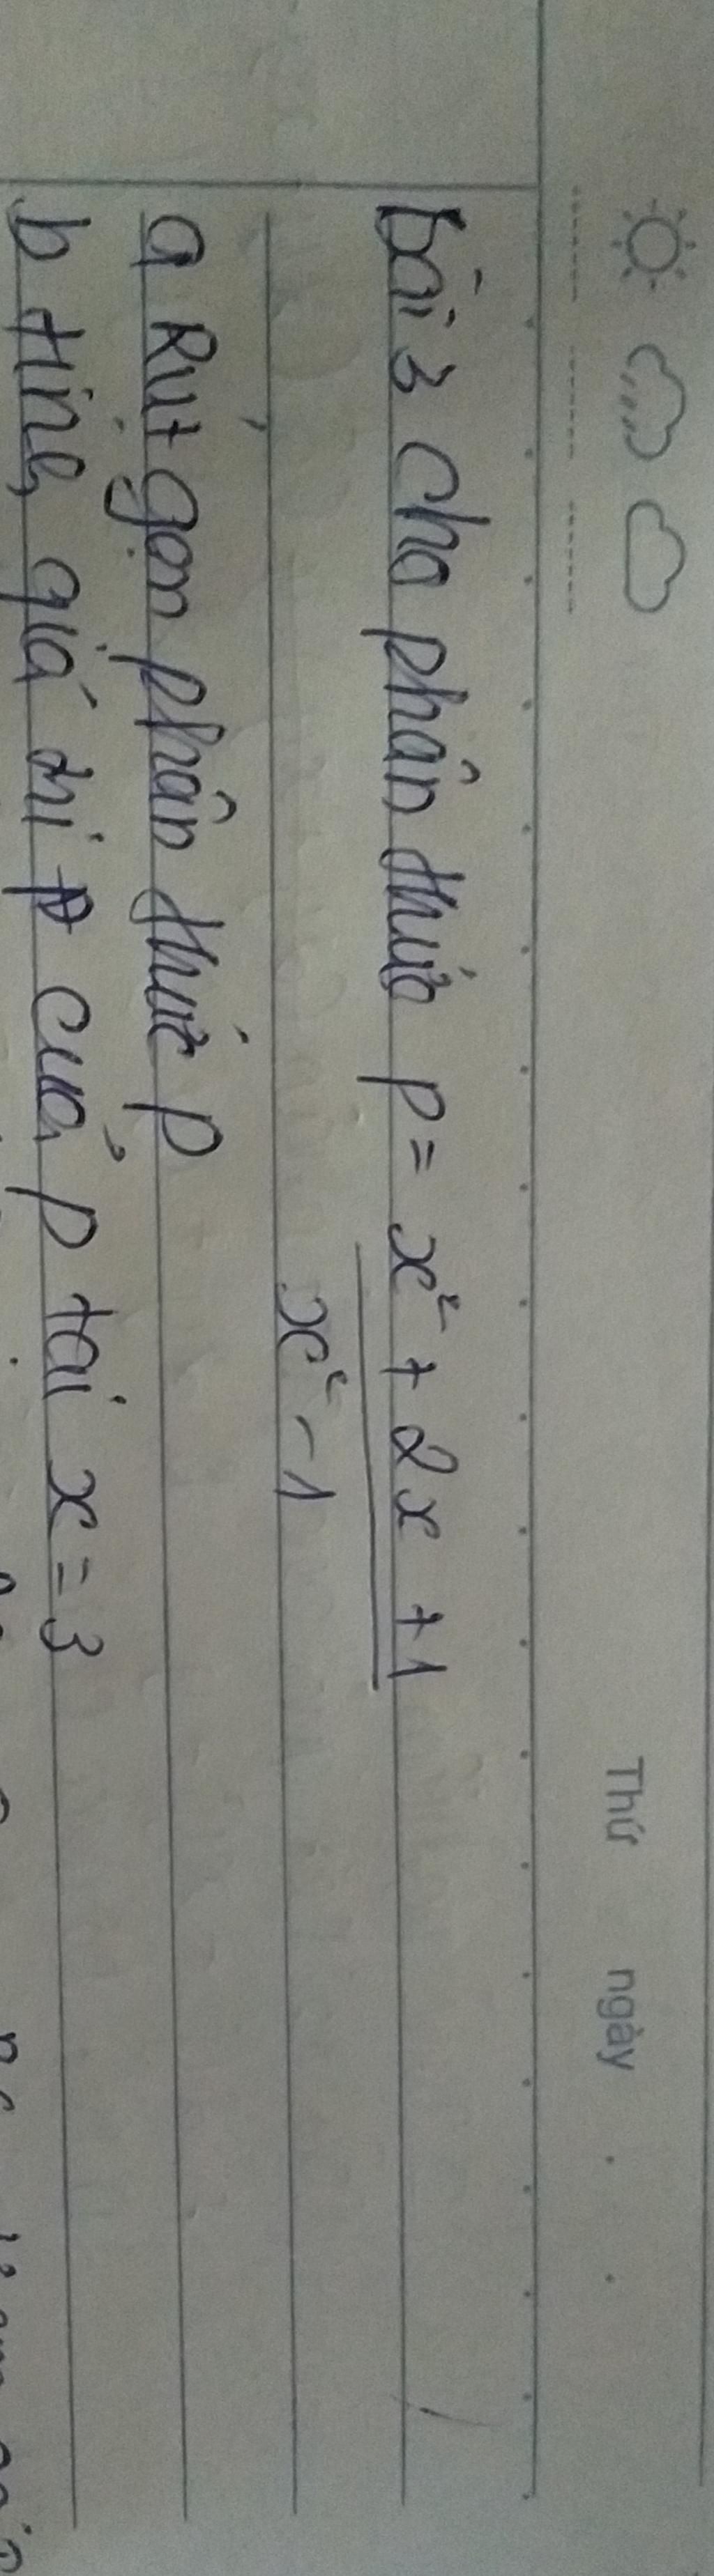 Thứ ngày
bài 3 cho phân thức p = x² + 2x + 1
x² - 1
a Rút gọn phân thức p
b tính giá trị p của p tại x = 3